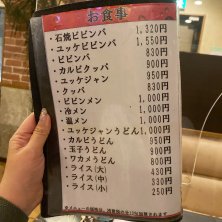 お食事
・石焼ビビンバ 1,320円
・ユッケビビンバ 1,550円
・ビビンバ 830円
・カルビクッパ 900円
・ユッケジャン 950円
・クッパ 830円
・ビビンメン 1,000円
・冷メン 1,000円
・温メン 1,000円
・ユッケジャンうどん 1,000円
・カルビうどん 950円
・玉子うどん 900円
・ワカメうどん 900円
・ライス(大) 430円
・ライス(中) 330円
・ライス(小) 250円